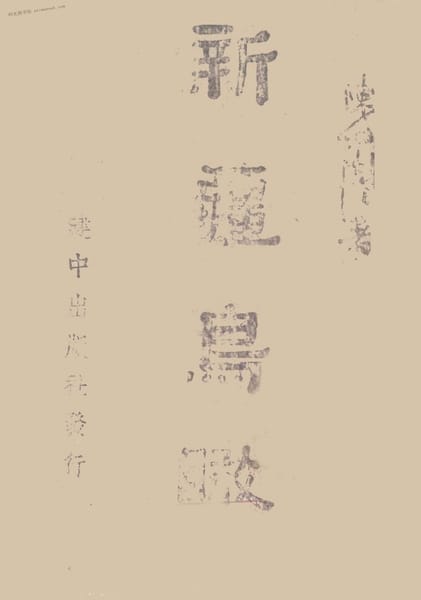 陳希豪著
新疆鳥瞰
建中出版社發行